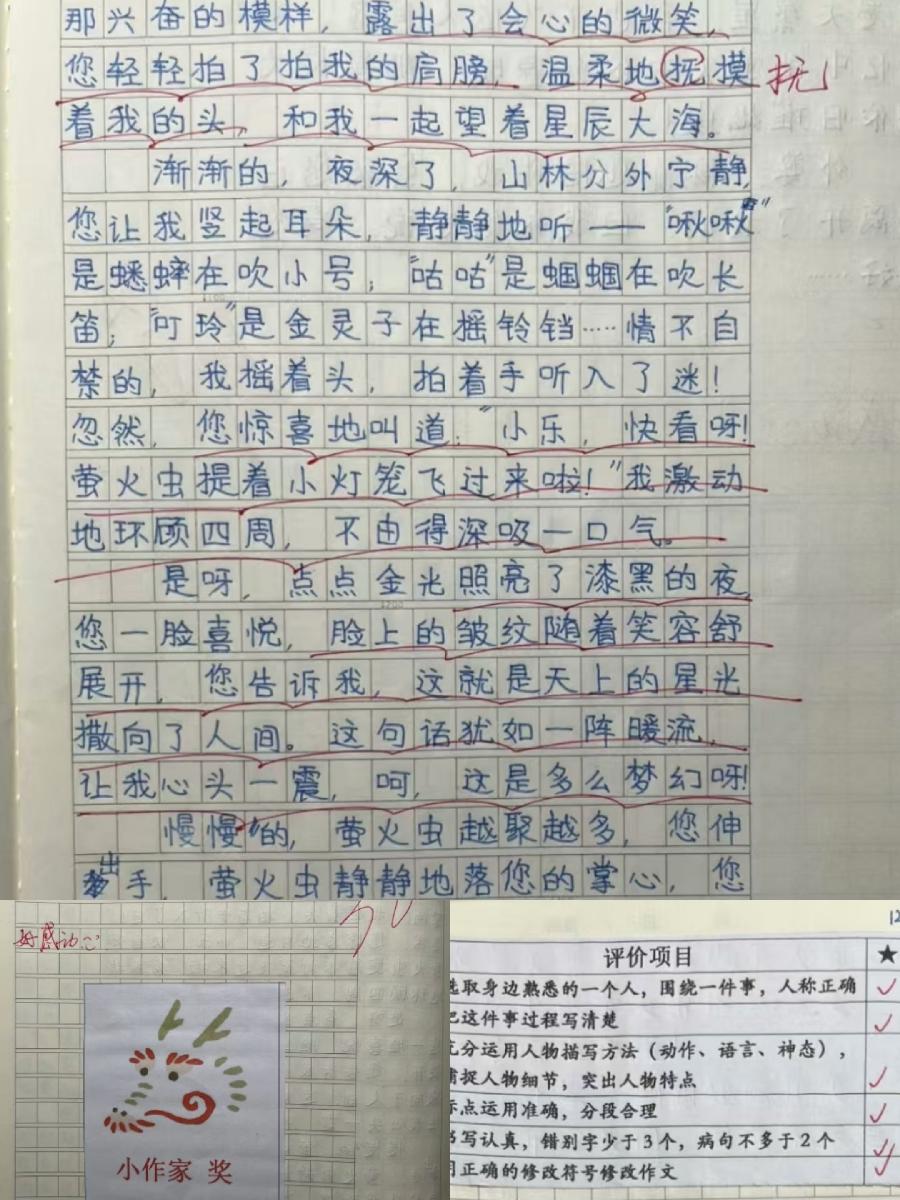 那兴奋的模样，露出了会心的微笑，
您轻轻拍了拍我的肩膀，温柔地抚摸
抚
着我的头，和我一起望着星辰大海。
渐渐的，夜深了，山林分外宁静，
您让我竖起耳朵，静静地听——“啾啾”
是蟋蟀在吹小号；“咕咕”是蝈蝈在吹长
笛；“叮玲”是金灵子在摇铃铛……情不自
禁的，我摇着头，拍着手听入了迷！
忽然，您惊喜地叫道：“小乐，快看呀！
萤火虫提着小灯笼飞过来啦！”我激动
地环顾四周，不由得深吸一口气。
是呀，点点金光照亮了漆黑的夜，
您一脸喜悦，脸上的皱纹随着笑容舒
展开，您告诉我，这就是天上的星光
撒向了人间。这句话犹如一阵暖流，
让我心头一震，呵，这是多么梦幻呀！
慢慢的，萤火虫越聚越多，您伸
出手，萤火虫静静地落您的掌心，您
好感动
小作家 奖
12
评价项目 ★
选取身边熟悉的一个人，围绕一件事，人称正确
把这件事过程写清楚
充分运用人物描写方法（动作、语言、神态），
捕捉人物细节，突出人物特点
标点运用准确，分段合理
书写认真，错别字少于3个，病句不多于2个
用正确的修改符号修改作文